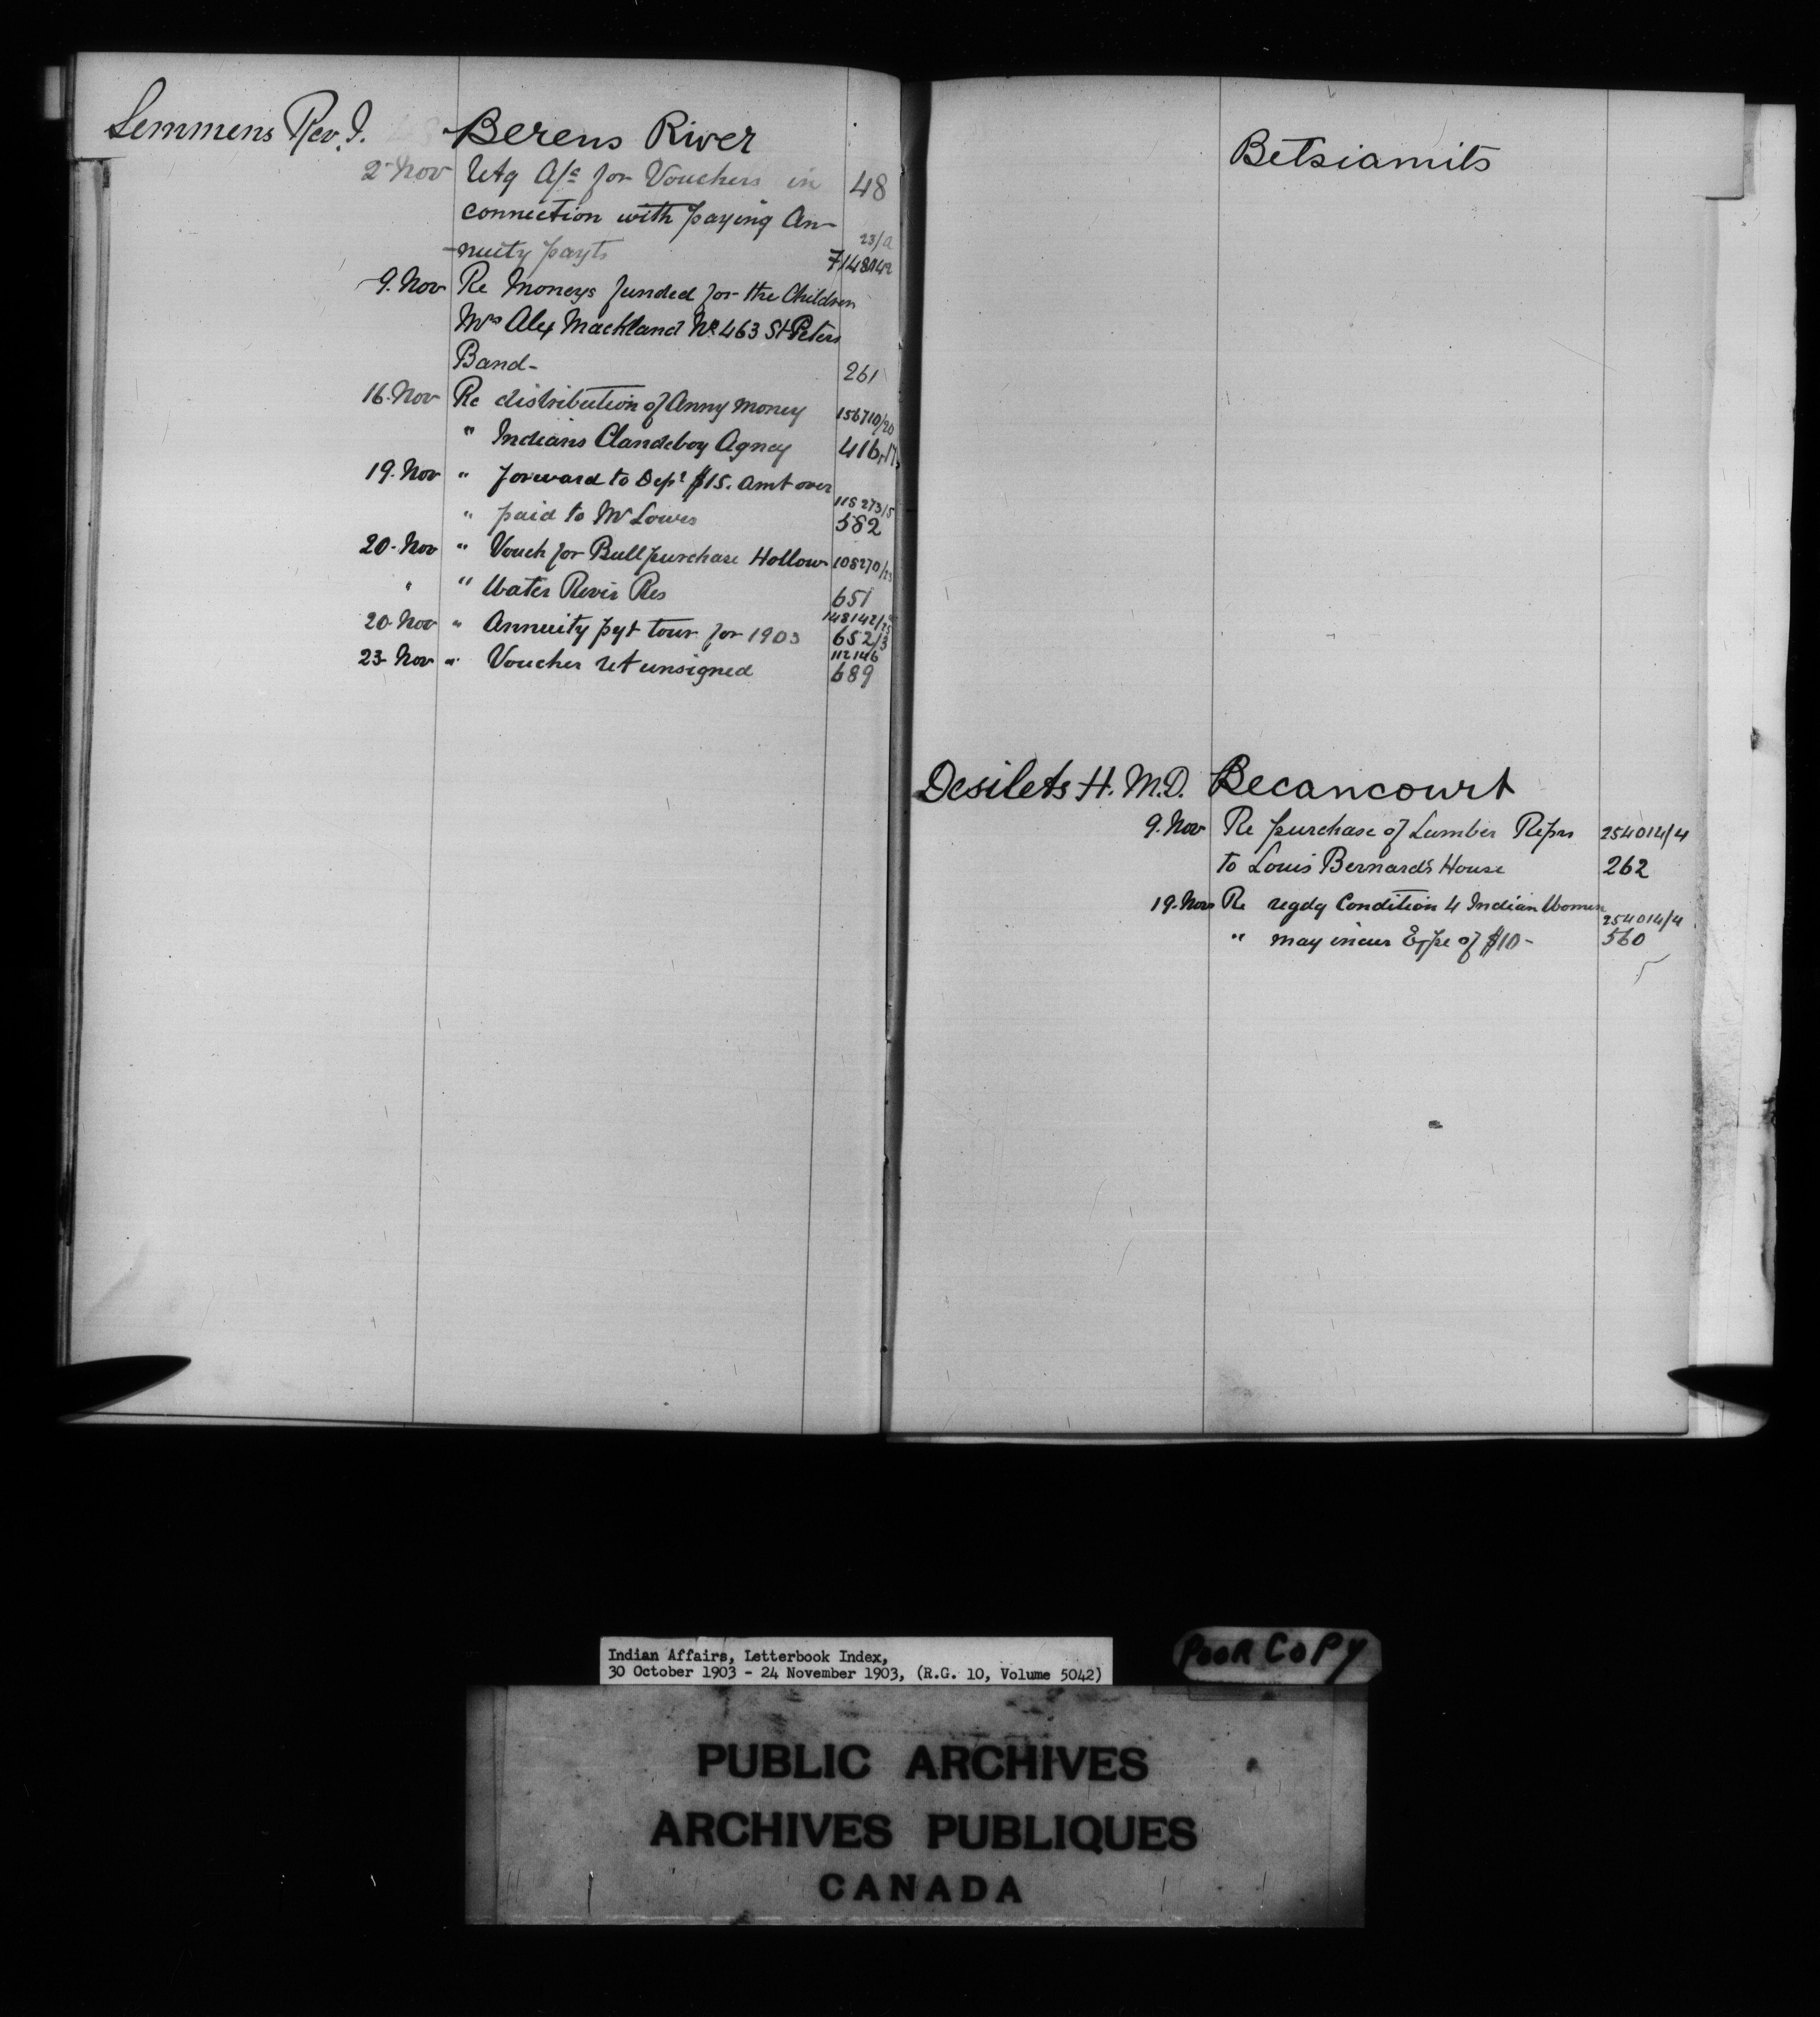 Semmens Rev. J. Berens River
2 Nov Retg A/c for Vouchers in 48
connection with paying An-
-nuity payts 23/a 7/148142
9. Nov Re Moneys funded for the Children
Mrs Alex Mackland No 463 St Peters
Band- 261
16. Nov Re distribution of Anny Money 156710/20
" Indians Clandeboy Agncy 416,17
19. Nov " forward to Dept $15. Amt over
" paid to Mr Lowes 115273/5 582
20. Nov " Vouch for Bull purchase Hollow 105270/23
" " Water River Res 651
20. Nov " Annuity pyt tour for 1903 148142/25 652/3
23. Nov " Voucher ret unsigned 112146 689
Betsiamits
Desilets H. M.D. Becancourt
9. Nov Re purchase of Lumber Reprs 254014/4
to Louis Bernard's House 262
19. Nov Re regdg Condition 4 Indian Women
" may incur Expe of $10- 254014/4 560
Indian Affairs, Letterbook Index,
30 October 1903 - 24 November 1903, (R.G. 10, Volume 5042)
POOR COPY
PUBLIC ARCHIVES
ARCHIVES PUBLIQUES
CANADA